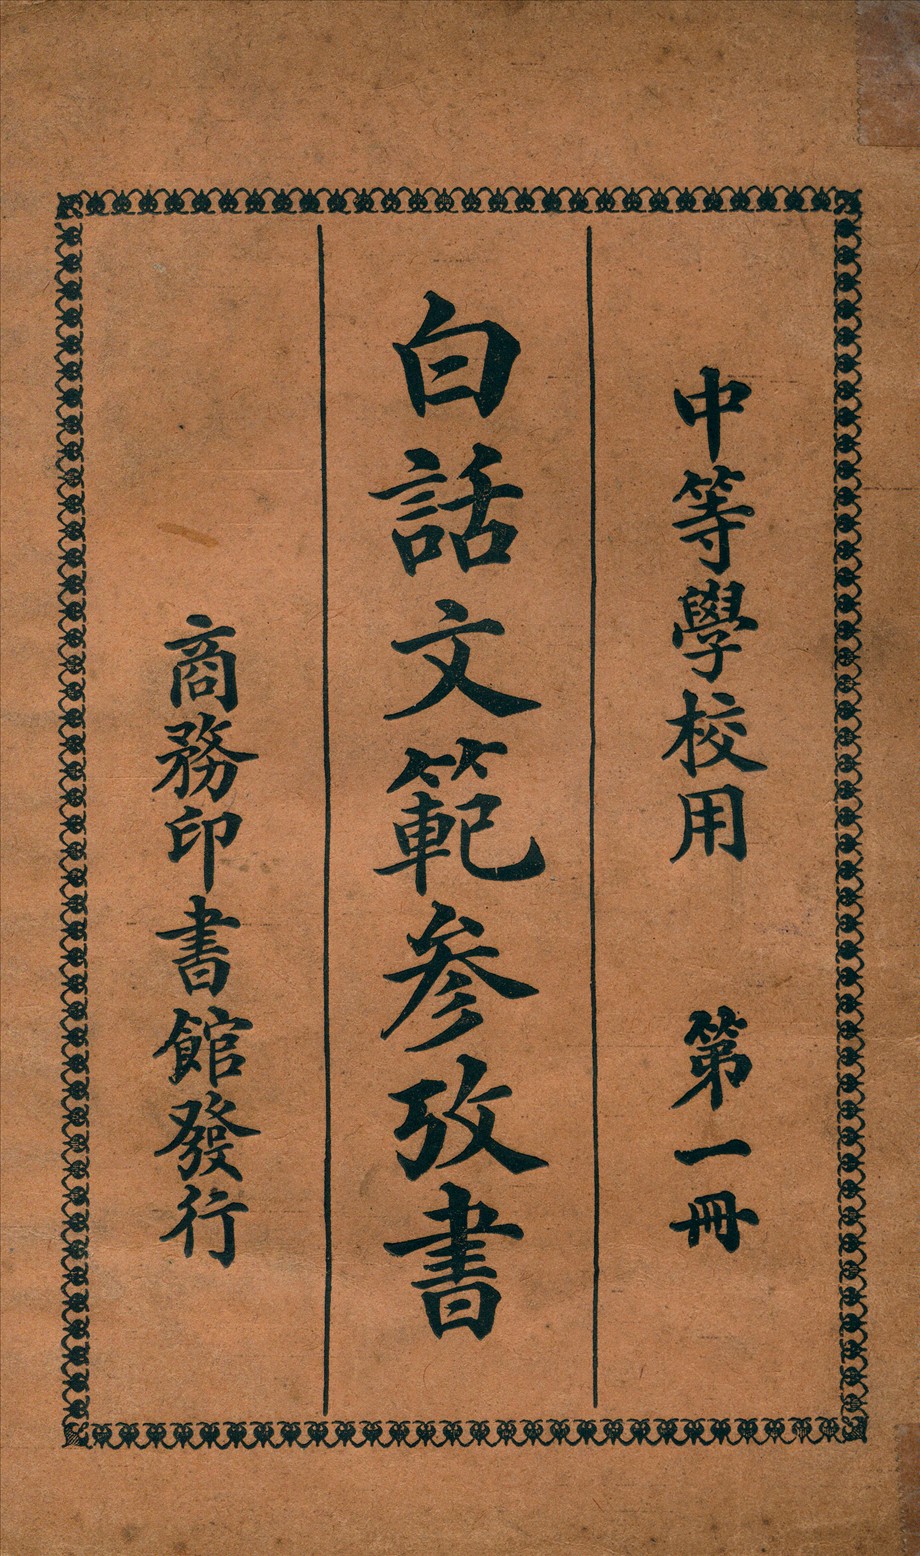 中等學校用 第一冊
白話文範參攷書
商務印書館發行